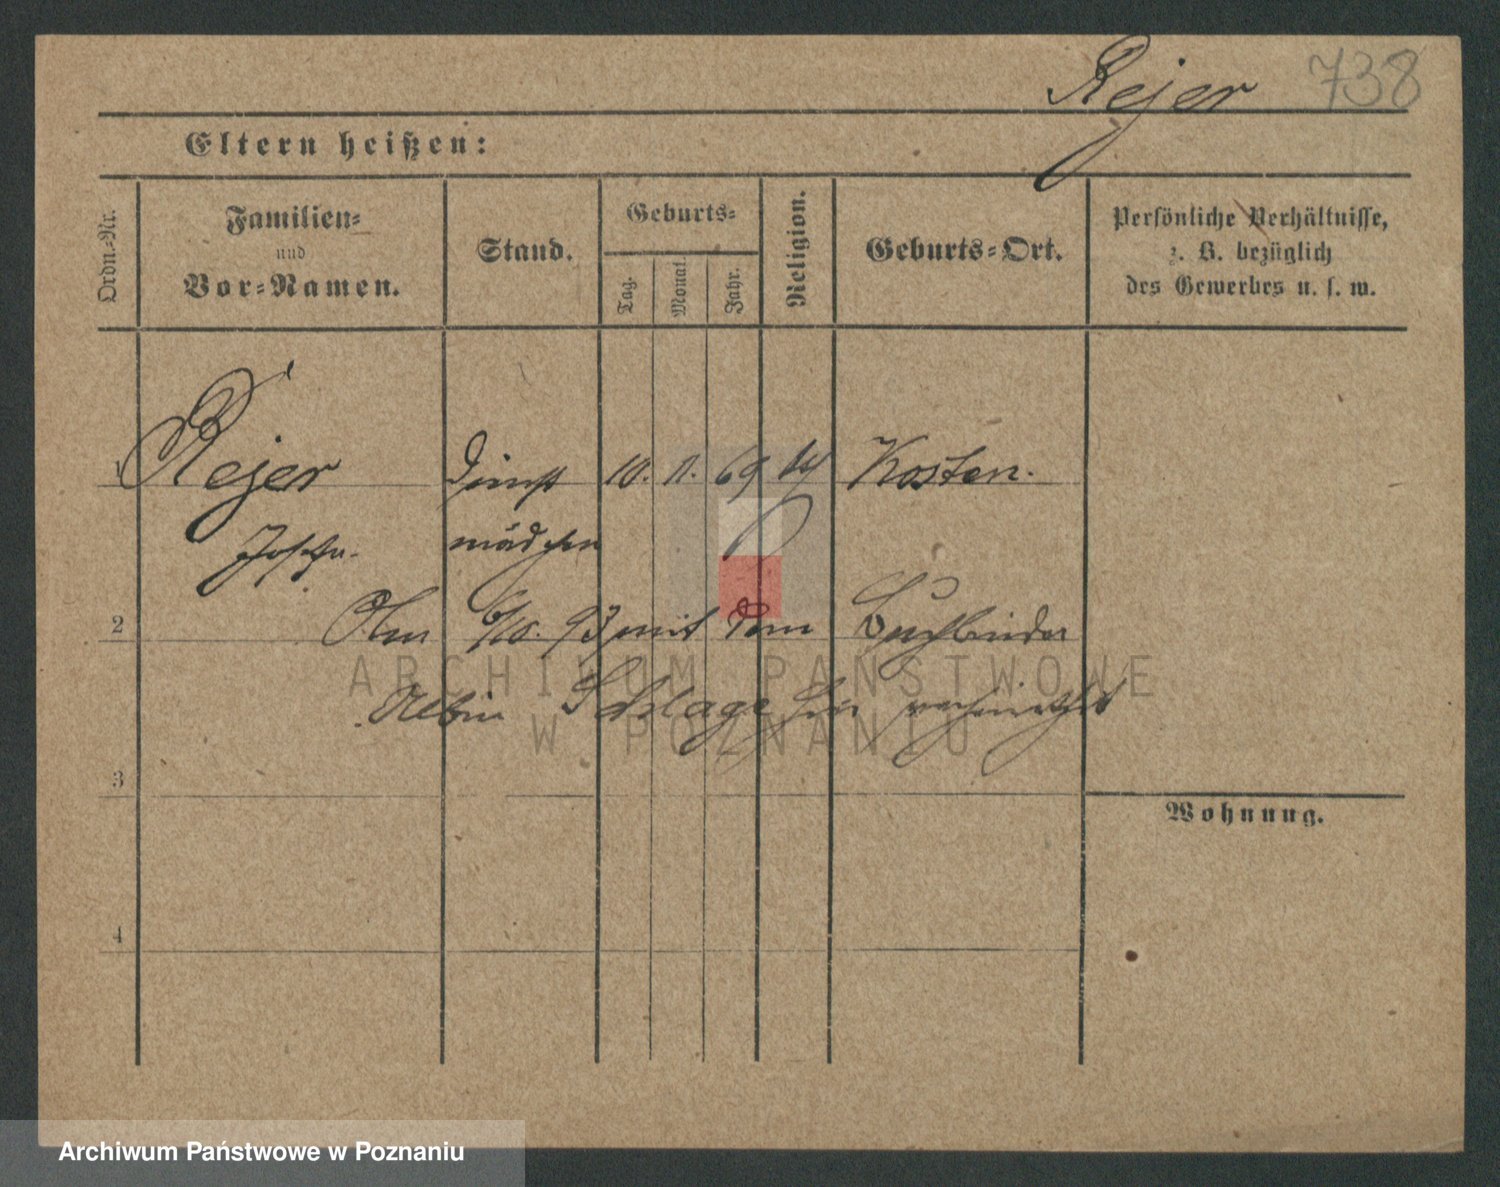 Rejer 738
Eltern heißen:
Ordn.-Nr.
Familien-
und
Vor-Namen.
Stand.
Geburts-
Tag.
Monat.
Jahr.
Religion.
Geburts-Ort.
Persönliche Verhältnisse,
z. B. bezüglich
des Gewerbes u. s. w.
1 Rejer Dienst 10. 11. 69 Kosten.
mädchen
2 6/10. 93 mit dem Buchbinder
Albin Schlage hier verheirathet
3
Wohnung.
4
ARCHIWUM PAŃSTWOWE
W POZNANIU
Archiwum Państwowe w Poznaniu